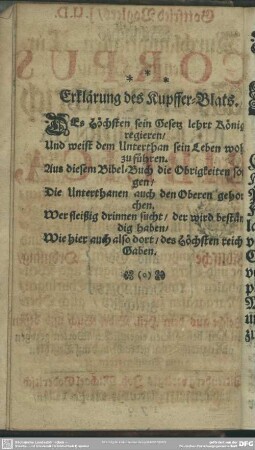 * * *
Erklärung des Kupffer-Blats.
DEs Höchsten sein Gesetz lehrt König
regieren/
Und weist dem Unterthan sein Leben wol
zu führen.
Aus diesem Bibel-Buch die Obrigkeiten so
gen/
Die Unterthanen auch den Oberen geho
chen.
Wer fleißig drinnen sucht/ der wird bestän
dig haben/
Wie hier auch also dort/ des Höchsten reich
Gaben.
(o)